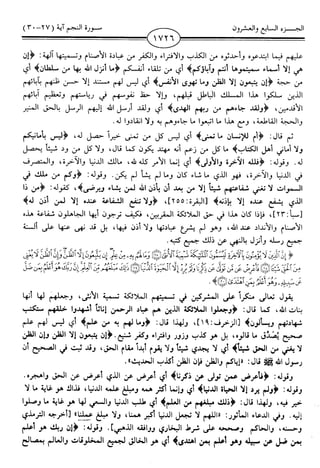 الجزء السابع والعشرون
١٧٢٦
سورة النجم آية (٢٧-٣٠)
عليهم فيما ابتدعوه وأحدثوه من الكذب والافتراء والكفر من عبادة الأصنام وتسميتها آلهة: ﴿إن
هي إلا أسماء سميتموها أنتم وآباؤكم﴾ أي من تلقاء أنفسكم ﴿ما أنزل الله بها من سلطان﴾ أي
من حجة ﴿إن يتبعون إلا الظن وما تهوى الأنفس﴾ أي ليس لهم مستند إلا حسن ظنهم بآبائهم
الذين سلكوا هذا المسلك الباطل قبلهم، وإلا حظ نفوسهم في رياستهم وتعظيم آبائهم
الأقدمين، ﴿ولقد جاءهم من ربهم الهدى﴾ أي ولقد أرسل الله إليهم الرسل بالحق المنير
والحجة القاطعة، ومع هذا ما اتبعوا ما جاءوهم به ولا انقادوا له.
ثم قال: ﴿أم للإنسان ما تمنى﴾ أي ليس كل من تمنى خيراً حصل له، ﴿ليس بأمانيكم
ولا أماني أهل الكتاب﴾ ما كل من زعم أنه مهتد يكون كما قال، ولا كل من ود شيئاً يحصل
له. وقوله: ﴿فلله الآخرة والأولى﴾ أي إنما الأمر كله لله، مالك الدنيا والآخرة، والمتصرف
في الدنيا والآخرة، فهو الذي ما شاء كان وما لم يشأ لم يكن. وقوله: ﴿وكم من ملك في
السموات لا تغني شفاعتهم شيئاً إلا من بعد أن يأذن الله لمن يشاء ويرضى﴾، كقوله: ﴿من ذا
الذي يشفع عنده إلا بإذنه﴾ [البقرة: ٢٥٥]، ﴿ولا تنفع الشفاعة عنده إلا لمن أذن له﴾
[سبأ: ٢٣]، فإذا كان هذا في حق الملائكة المقربين، فكيف ترجون أيها الجاهلون شفاعة هذه
الأصنام والأنداد عند الله، وهو لم يشرع عبادتها ولا أذن فيها، بل قد نهى عنها على ألسنة
جميع رسله وأنزل بالنهي عن ذلك جميع كتبه.
يقول تعالى منكراً على المشركين في تسميتهم الملائكة تسمية الأنثى، وجعلهم لها أنها
بنات الله، كما قال: ﴿وجعلوا الملائكة الذين هم عباد الرحمن إناثاً أشهدوا خلقهم ستكتب
شهادتهم ويسألون﴾ [الزخرف: ١٩]، ولهذا قال: ﴿وما لهم به من علم﴾ أي ليس لهم علم
صحيح يُصدّق ما قالوه، بل هو كذب وزور وافتراء وكفر شنيع. ﴿إن يتبعون إلا الظن وإن الظن
لا يغني من الحق شيئاً﴾ أي لا يجدي شيئاً ولا يقوم أبداً مقام الحق، وقد ثبت في الصحيح أن
رسول الله ﷺ قال: «إياكم والظن فإن الظن أكذب الحديث».
وقوله: ﴿فأعرض عمن تولى عن ذكرنا﴾ أي أعرض عن الذي أعرض عن الحق واهجره.
وقوله: ﴿ولم يرد إلا الحياة الدنيا﴾ أي وإنما أكثر همه ومبلغ علمه الدنيا، فذاك هو غاية ما لا
خير فيه، ولهذا قال: ﴿ذلك مبلغهم من العلم﴾ أي طلب الدنيا والسعي لها هو غاية ما وصلوا
إليه. وفي الدعاء المأثور: «اللهم لا تجعل الدنيا أكبر همنا، ولا مبلغ علمنا» [أخرجه الترمذي
وحسنه، والحاكم وصححه على شرط البخاري ووافقه الذهبي]. وقوله: ﴿إن ربك هو أعلم
بمن ضل عن سبيله وهو أعلم بمن اهتدى﴾ أي هو الخالق لجميع المخلوقات والعالم بمصالح